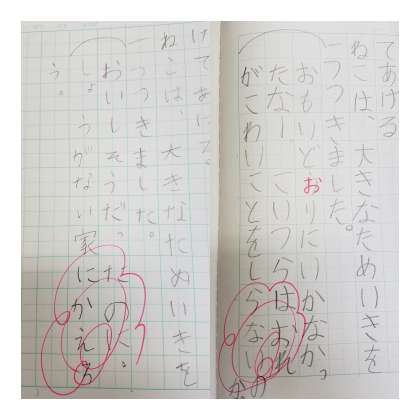 てあげる
ねこは、大きなためいきを
一つつきました。
おもいどおりにいかなかっ
たなーこいつらはおれ
がこわいことをしらないのか
けてあげる。
ねこは、大きなためいきを
一つつきました。
おいしそうだったのに。
しょうがない家にかえろ
う。